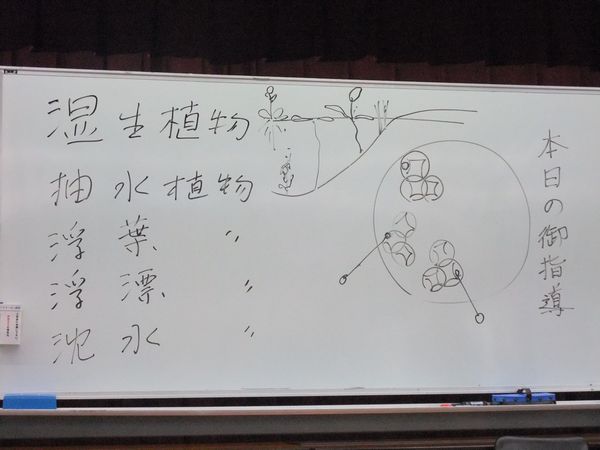 湿生植物
抽水植物
浮葉 〃
浮漂 〃
沈水 〃
本日の御指導